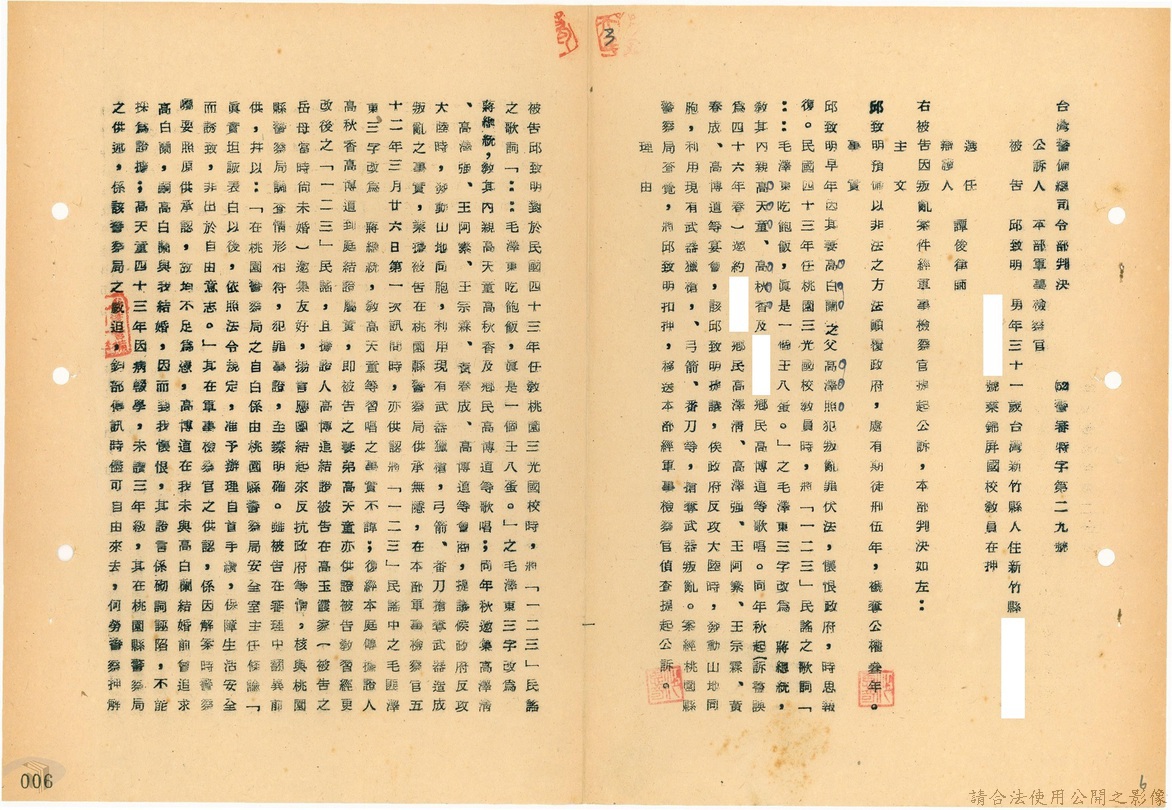 台灣警備總司令部判決　　國警審特字第二九號
公訴人　本部軍事檢察官
被告　邱致明　男年三十一歲台灣新竹縣人住新竹縣
號業錦屏國校教員在押
選任
辯護人　譚俊律師
右被告因叛亂案件經軍事檢察官提起公訴，本部判決如左：
主文
邱致明預備以非法之方法顛覆政府，處有期徒刑伍年，褫奪公權叁年。
事實
邱致明早年因其妻高白蘭之父高澤照犯叛亂罪伏法，懷恨政府，時思報
復。民國四十三年任桃園三光國校教員時，將「一二三」謠之歌詞「
：：毛澤東吃飽飯，眞是一個王八蛋。」之毛澤東三字改爲　蔣總統，
教其內親高天童、高秋香及　鄉民高博道等歌唱。同年秋起（訴書誤
爲四十六年春）邀約　鄉民高澤清、高澤强、王阿案、王宗霖、黃
春成、高博道等宴會，該邱致明提議，俟政府反攻大陸時，發動山地同
胞，利用現有武器獵槍，、弓箭、番刀等，搶奪武器叛亂。案經桃園縣
警察局查覺，將邱致明扣押，移送本部經軍事檢察官偵查提起公訴。
理由
一
被告邱致明對於民國四十三年任教桃園三光國校時，將「一二三」民謠
之歌詞「：：毛澤東吃飽飯，眞是一個王八蛋。」之毛澤東三字改爲
蔣總統，教其內親高天童高秋香及鄉民高博道等歌唱；同年秋邀集高澤清
、高澤强、王阿案、王宗霖、黃春成、高博道等會商，提議俟政府反攻
大陸時，發動山地同胞，利用現有武器獵槍，弓箭、番刀搶奪武器造成
叛亂之事實，業據被告在桃園縣警察局供承無隱，在本部軍事檢察官五
十二年三月廿六日第一次訊問時，亦供認將「一二三」民謠中之毛匪澤
東三字改爲　蔣總統，教高天童等習唱之事實不諱；復經本庭傳據證人
高秋香高博道到庭結證屬實，即被告之妻弟高天童亦供證被告教習經更
改後之「一二三」民謠，且據證人高博道結證被告在高玉霞家（被告之
岳母當時尚未婚）邀集友好，揚言應團結起來反抗政府等情，核與桃園
縣警察局調查情形相符，犯罪事證，至臻明確。雖被告在審理中翻異前
供，并以：「在桃園警察局之自白係由桃園縣警察局安全室主任倏論「
眞實坦誠表白以後，依照法令規定，准予辦理自首手續，保障生活安全
而誘致，非出於自由意志。」其在軍事檢察官之供認，係因解案時警察
囑要照原供承認，故均不足爲憑，高博道在我未與高白蘭結婚前曾追求
高白蘭，嗣高白蘭與我結婚，因而對我懷恨，其證言係砌詞誣陷，不能
採爲證據；高天童四十三年因病輟學，未讀三年級，其在桃園縣警察局
之供述，係該警察局之威迫，鈞部傳訊時儘可自由來去，何勞警察押解
3
6
006
請合法使用公開之影像